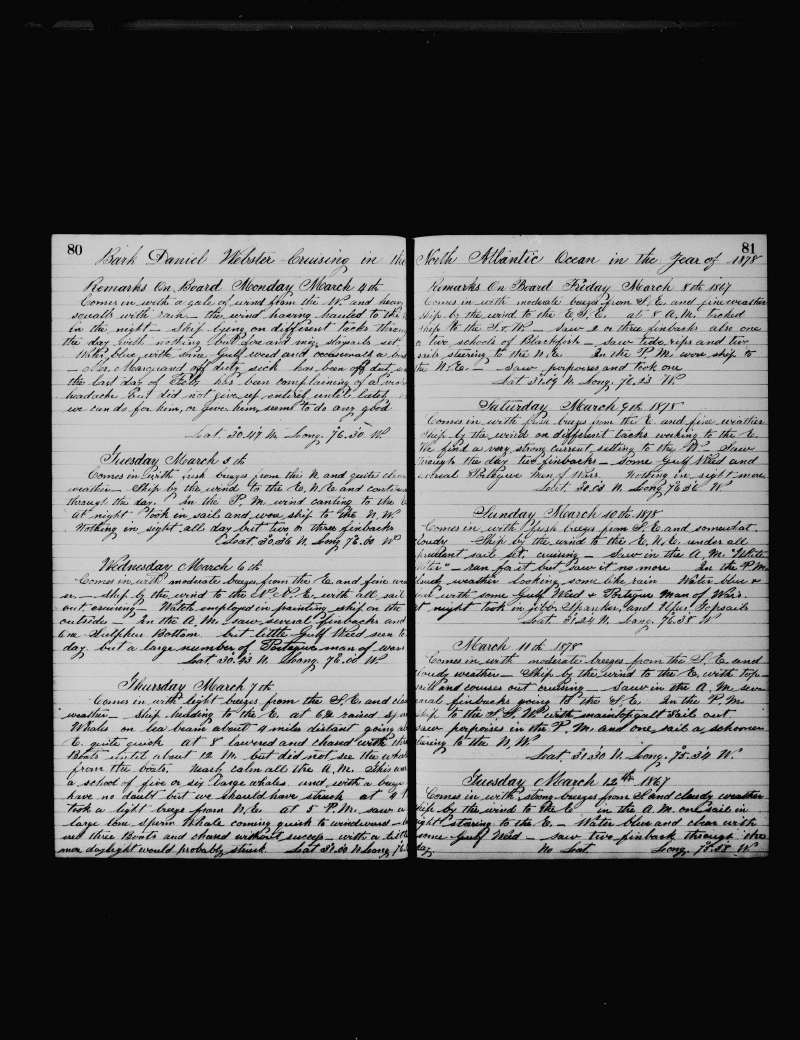 80
Bark Daniel Webster Cruising in the
Remarks On Board Monday March 4th
Comes in with a gale of wind from the W. and heavy
squalls with rain — the wind having hauled to the
in the night — Ship lying on different tacks through
the day with nothing but fore and miz. staysails set
Water blue with some Gulf weed and occasionally a
— Mr. Marquand off duty sick has been off duty
the last day of Feby has been complaining of a
headache but did not give up entirely until late
we can do for him, or give him, seems to do any good
Lat. 30.47 N. Long. 76.30 W
Tuesday March 5th
Comes in with fresh breezes from the N and quite clear
weather — Ship by the wind to the E.N.E and
through the day. In the P.M. wind canting to the
at night took in sail and wore ship to the N.W
Nothing in sight all day but two or three finbacks
Lat. 30.36 N. Long 76.00 W
Wednesday March 6th
Comes in with moderate breezes from the E. and fine
— Ship by the wind to the N.N.E. with all sail
out cruising — Watch employed in painting ship on the
outside — In the A.M. saw several finbacks and
One Sulpher Bottom. but little Gulf Weed seen to
day but a large number of Portegue man of wars
Lat. 30.43 N. Long. 76.00 W
Thursday March 7th
Comes in with light breezes from the S.E and
weather — Ship heading to the E. at 6½ raised
Whales on lea beam about 4 miles distant going
E. quite quick at 8 lowered and chased with
Boats until about 12 M. but did not see the
from the boats. Nearly calm all the A.M. This was
a school of five or six large whales and with a breeze
have no daubt but we should have struck at
took a light breeze from N.E. at 5 P.M. saw a
large lone Sperm Whale coming quick to windward
three Boats and chased without success — with a little
more daylight would probably struck. Lat 31.00 N Long 76
81
North Atlantic Ocean in the Year of 1878
Remarks On Board Friday March 8th 1867
Comes in with moderate breezes from S.E. and fine weather
Ship by the wind to the E.S.E. at 8 A.M. tacked
Ship to the S.S.W. — Saw 2 or three finbacks also one
or two schools of Blackfish — Saw tide rips and two
sails steering to the N.E. In the P.M. wore ship to
the N.E. — Saw porpoises and took one
Lat 31.09 N. Long. 76.23 W
Saturday March 9th 1878
Comes in with fresh breezes from the E. and fine weather
Ship by the wind on different tacks working to the E.
We find a very strong current setting to the W — Saw
through the day two finbacks — Some Gulf Weed and
several Portegue Man of Wars. Nothing in sight more
Lat. 30.58 N. Long 76.36 W
Sunday March 10th 1878
Comes in with fresh breezes from S.E and somewhat
cloudy Ship by the wind to the E.N.E. under all
prudent sail set, cruising — Saw in the A.M. "White
Water" — ran for it but saw it no more In the P.M.
cloudy weather looking some like rain Water blue &
with some Gulf Weed & Portegue Man of Wars.
at night took in jibs, Spanker, and Uper Topsails
Lat. 31.24 N. Long. 76.38 W
March 11th 1878
Comes in with moderate breezes from the S.E. and
cloudy weather — Ship by the wind to the E. with top—
sails and courses out cruising — Saw in the A.M. sev—
eral finbacks going to the S.E. In the P.M
Ship to the S.S.W. with maintopgalt sail out —
Saw porpoises in the P.M. and one sail a schooner
steering to the N.W.
Lat. 31.30 N. Long. 75.34 W.
Tuesday March 12th 1867
Comes in with strong breezes from S. and cloudy weather
Ship by the wind to the E in the A.M. one sail in
sight staring to the E. — Water blue and clear with
some Gulf Weed — Saw two finback through the
day No Lat. Long. 75.38 W